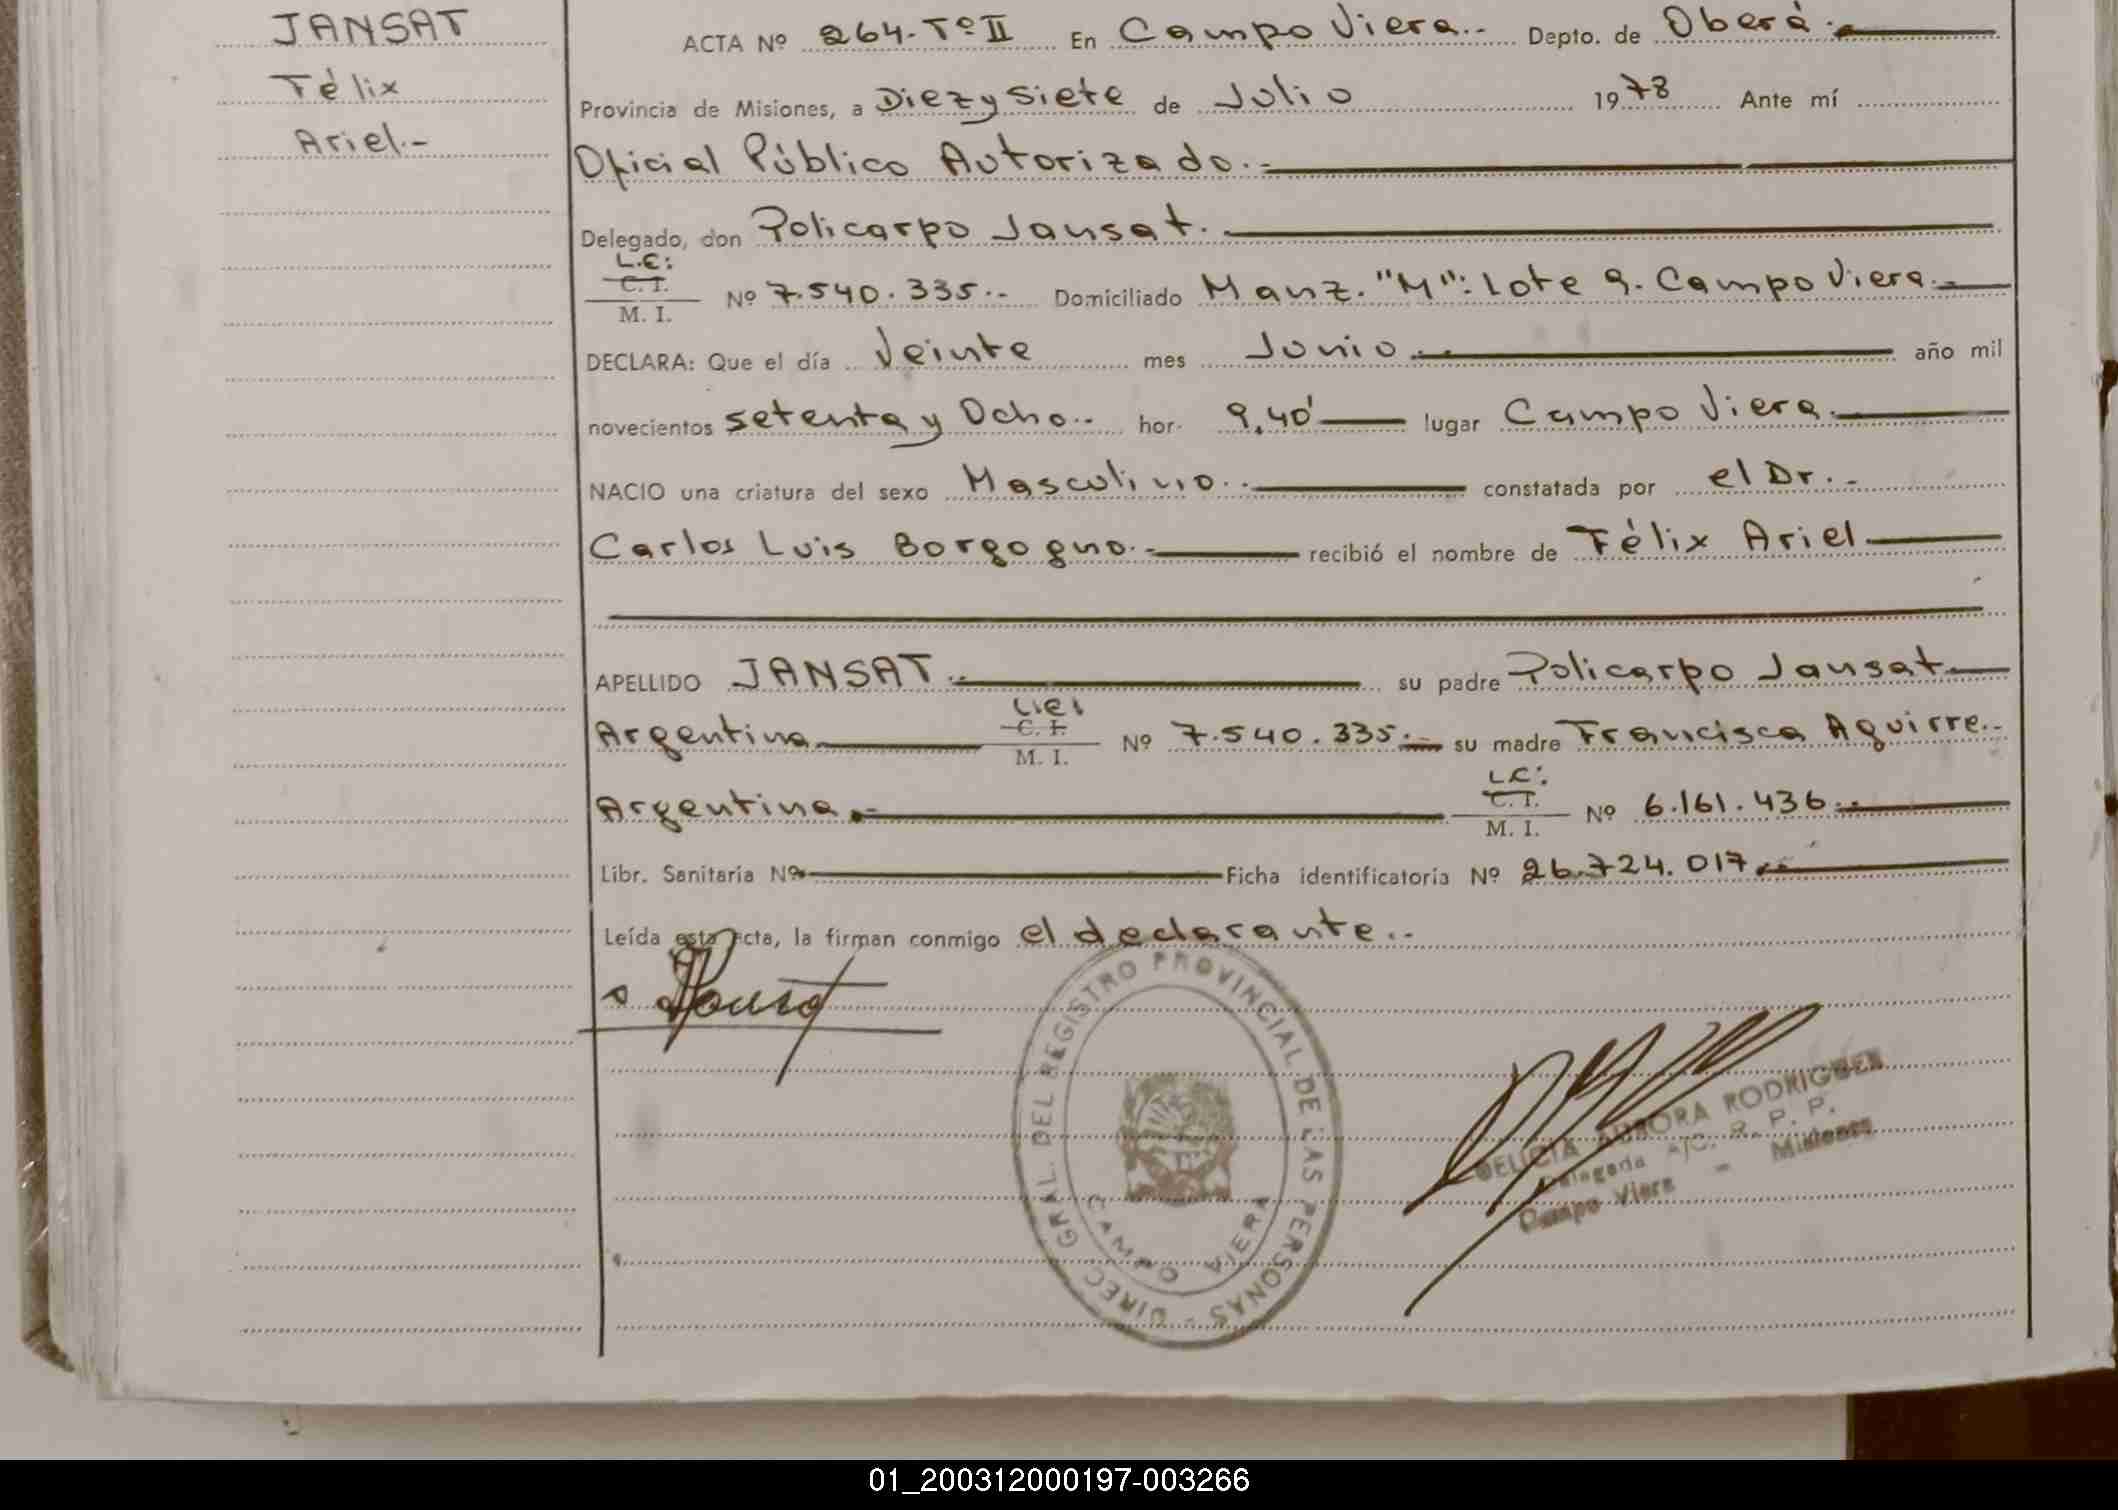 JANSAT
Félix
Ariel.-
ACTA Nº 264. Tº II En Campo Viera.. Depto. de Oberá.
Provincia de Misiones, a Diez y Siete de Julio 1978 Ante mí
Oficial Público Autorizado.-
Delegado, don Policarpo Jansat.
L.E:
C. I.
M. I. Nº 7.540.335.. Domiciliado Manz. "M": Lote 9. Campo Viera.
DECLARA: Que el día Veinte mes Junio. año mil
novecientos setenta y Ocho.. hor. 9,40' lugar Campo Viera.
NACIO una criatura del sexo Masculino.. constatada por el Dr.-
Carlos Luis Borgogno.- recibió el nombre de Félix Ariel
APELLIDO JANSAT.. su padre Policarpo Jansat
Argentino C. I. M. I. Nº 7.540.335. su madre Francisca Aguirre..
Argentina.- L.C: C. I. M. I. Nº 6.161.436..
Libr. Sanitaria Nº Ficha identificatoria Nº 26.724.017..
Leída esta acta, la firman conmigo el declarante..
DIREC. GRAL. DEL REGISTRO PROVINCIAL DE LAS PERSONAS -
CAMPO VIERA
DELICIA AURORA RODRIGUEZ
Delegada A/C. R. P. P.
Campo Viera - Misiones
01_200312000197-003266